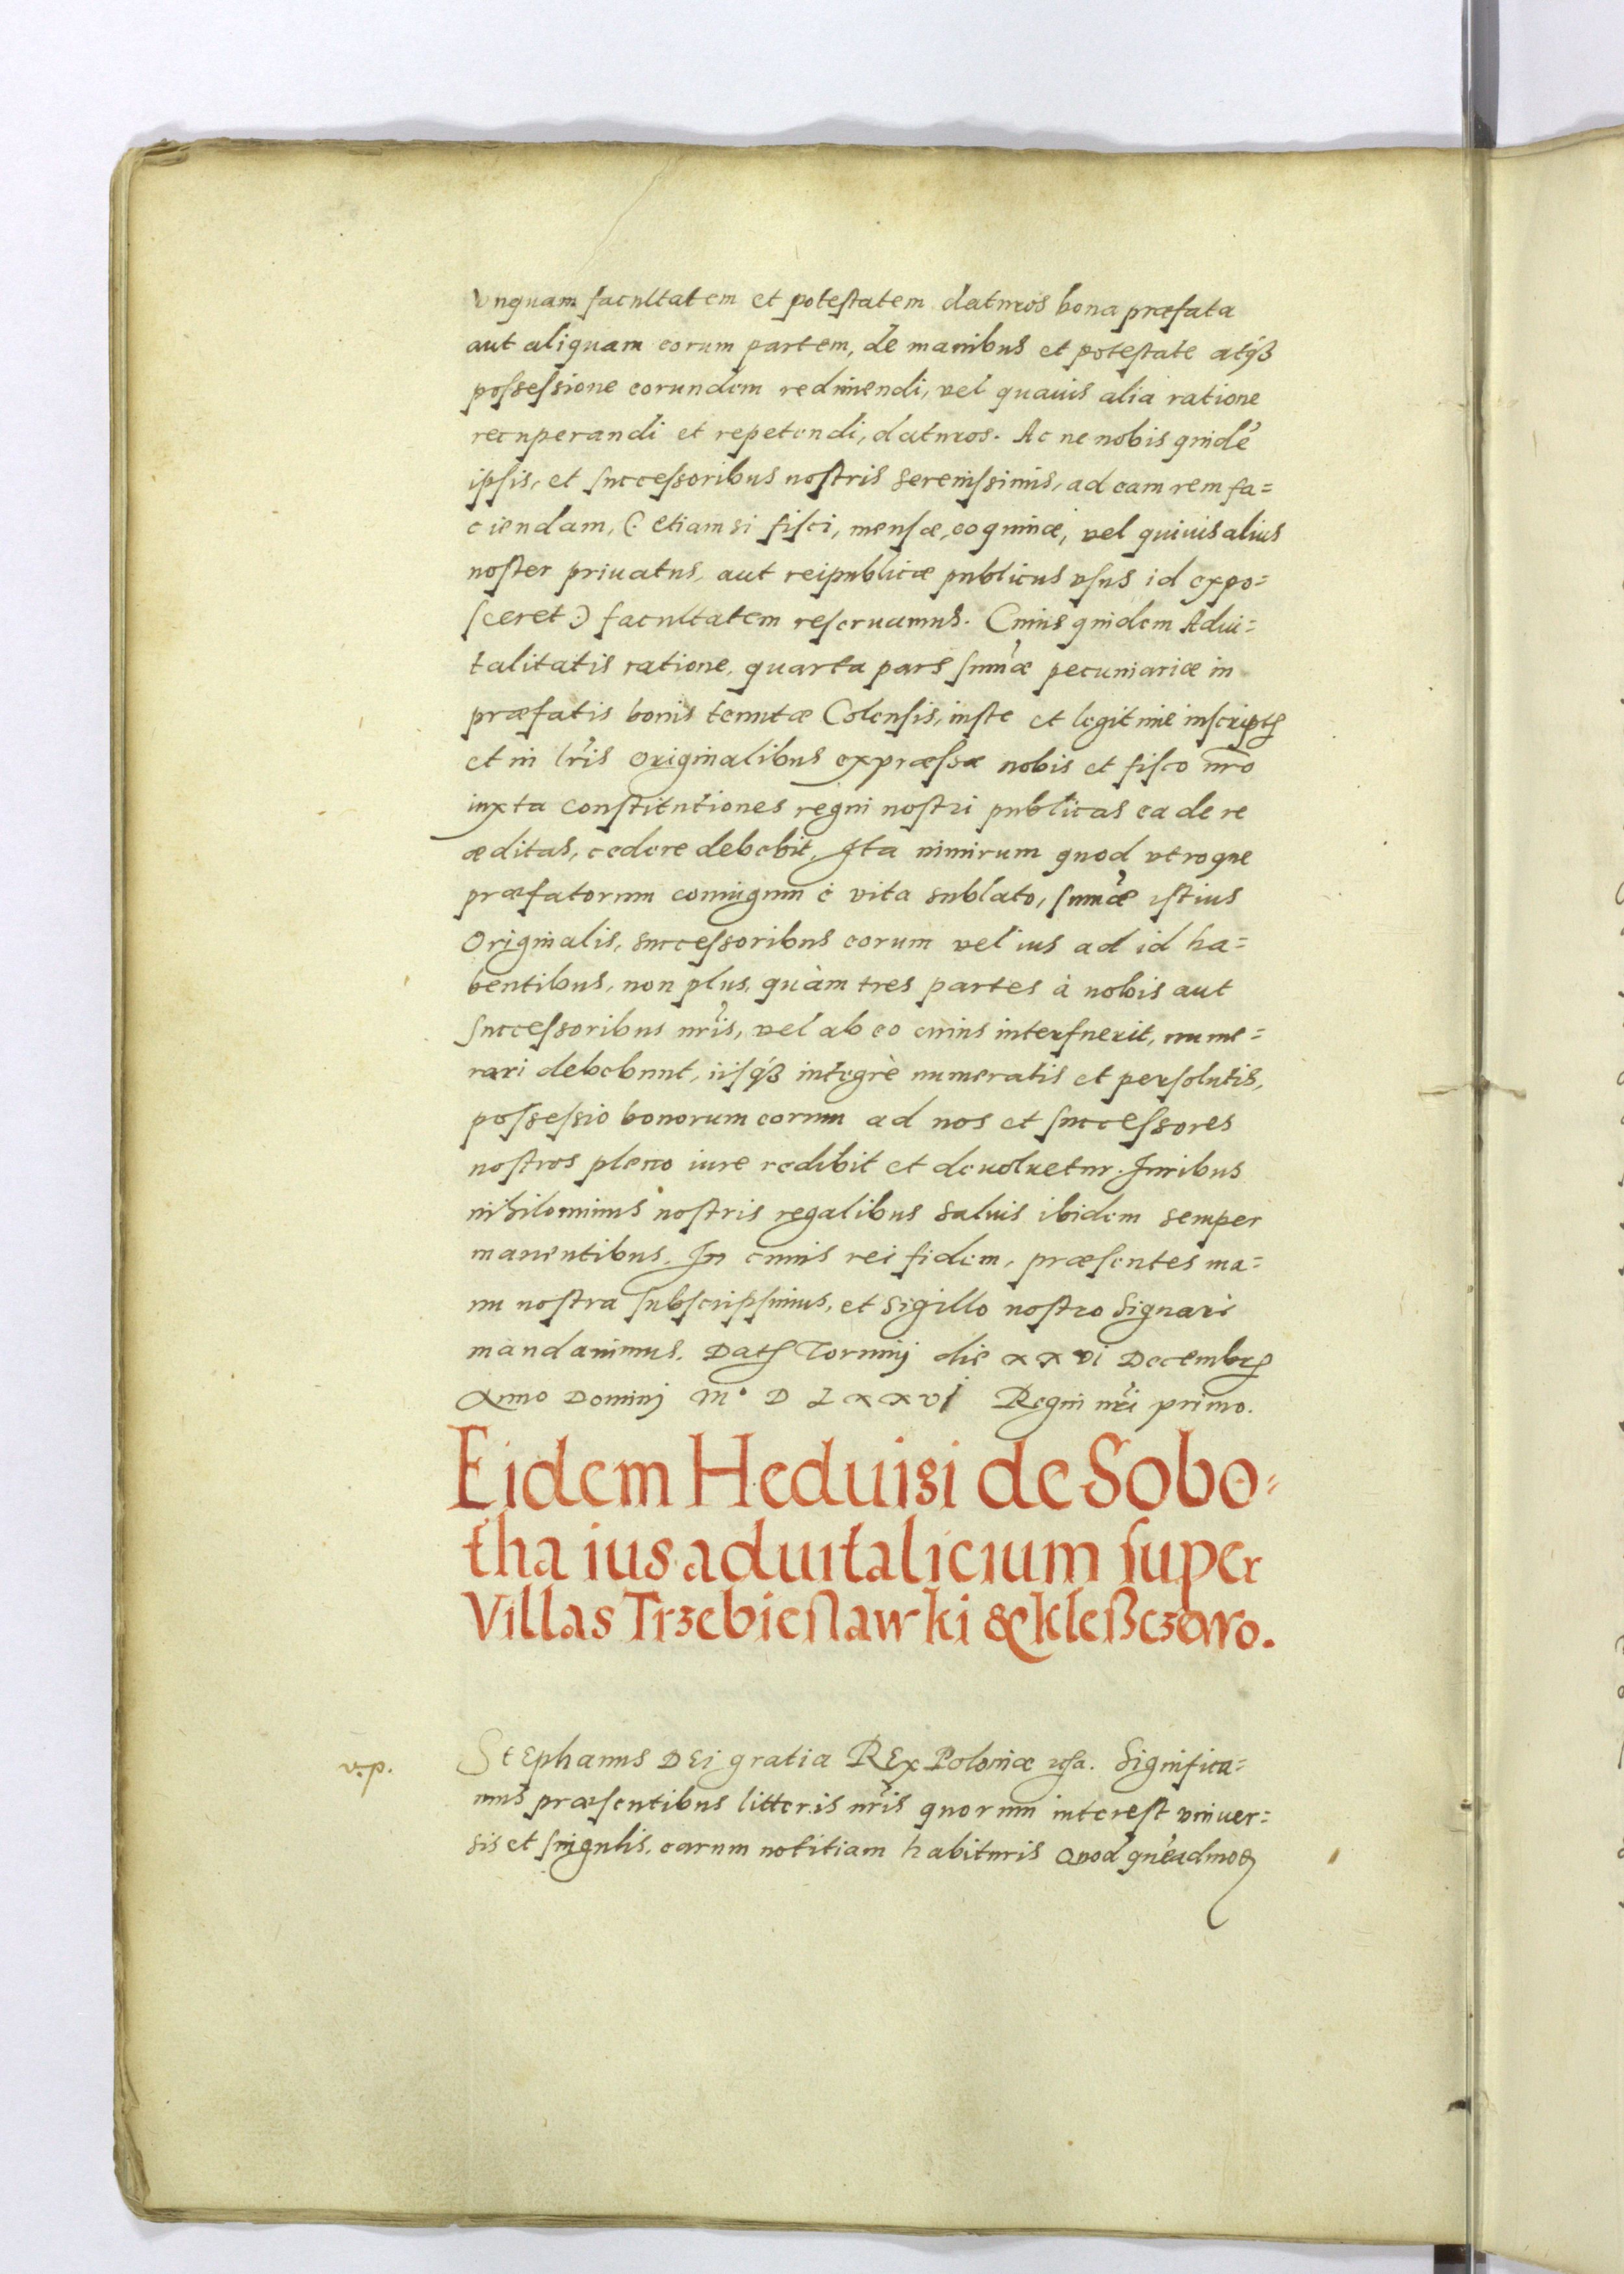 vnquam facultatem et potestatem daturos bona præfata
aut aliquam eorum partem, de manibus et potestate atq́ꝫ
possessione eorundem redimendi, vel quauis alia ratione
recuperandi et repetendi, daturos. Ac ne nobis quidē
ipsis, et successoribus nostris serenissimis, ad eam rem fa=
ciendam, (: etiam si fisci, mensæ, coquinæ, vel quiuis alius
noster priuatus, aut reipublicæ publicus vsus id expo=
sceret :) facultatem reseruamus. Cuius quidem Adui=
talitatis ratione, quarta pars sum̃æ pecuniariæ in
præfatis bonis tenutæ Colensis, iuste et legitime inscriptę
et in lr̃is originalibus expræssæ nobis et fisco nr̃o
iuxta constitutiones regni nostri publicas ea de re
æditas, cedere debebit. Ita nimirum quod vtroque
præfatorum coniugum è vita sublato, sum̃æ istius
Originalis, successoribus eorum vel ius ad id ha=
bentibus, non plus, quàm tres partes à nobis aut
successoribus nr̃is, vel ab eo cuius interfuerit, nume=
rari debebunt, iisq́ꝫ integrè numeratis et persolutis,
possessio bonorum eorum ad nos et successores
nostros pleno iure redibit et deuoluetur. Iuribus
nihilominus nostris regalibus saluis ibidem semper
manentibus. In cuius rei fidem, præsentes ma=
nu nostra subscripsimus, et sigillo nostro signari
mandauimus. Datę Torunij die xxvi Decembrę
Anno Dominj M° D Lxxvi Regni nr̃i primo.
Eidem Heduisi de Sobo=
tha ius aduitalicium super
Villas Trzebieslawki & kleßczewo.
v.p.
Stephanus DEi gratia REx Poloniæ etc̃a. Significa=
mus præsentibus litteris nr̃is quorum interest vniuer=
sis et singulis, earum notitiam habituris Quod quēadmoꝺ